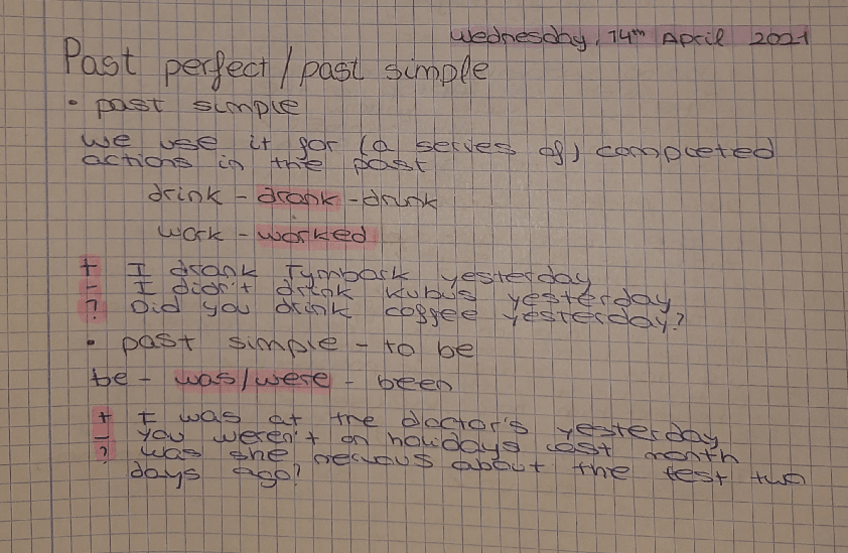 Wednesday, 14th April 2021
Past perfect/past simple
• past simple
we use it for (a series of) completed
actions in the past
drink - drank - drunk
work - worked
+ I drank Tymbark yesterday
- I didn't drink Kubuś yesterday
? Did you drink coffee yesterday?
• past simple - to be
be - was/were - been
+ I was at the doctor's yesterday
- you weren't on holidays last month
? was she nervous about the test two
days ago?